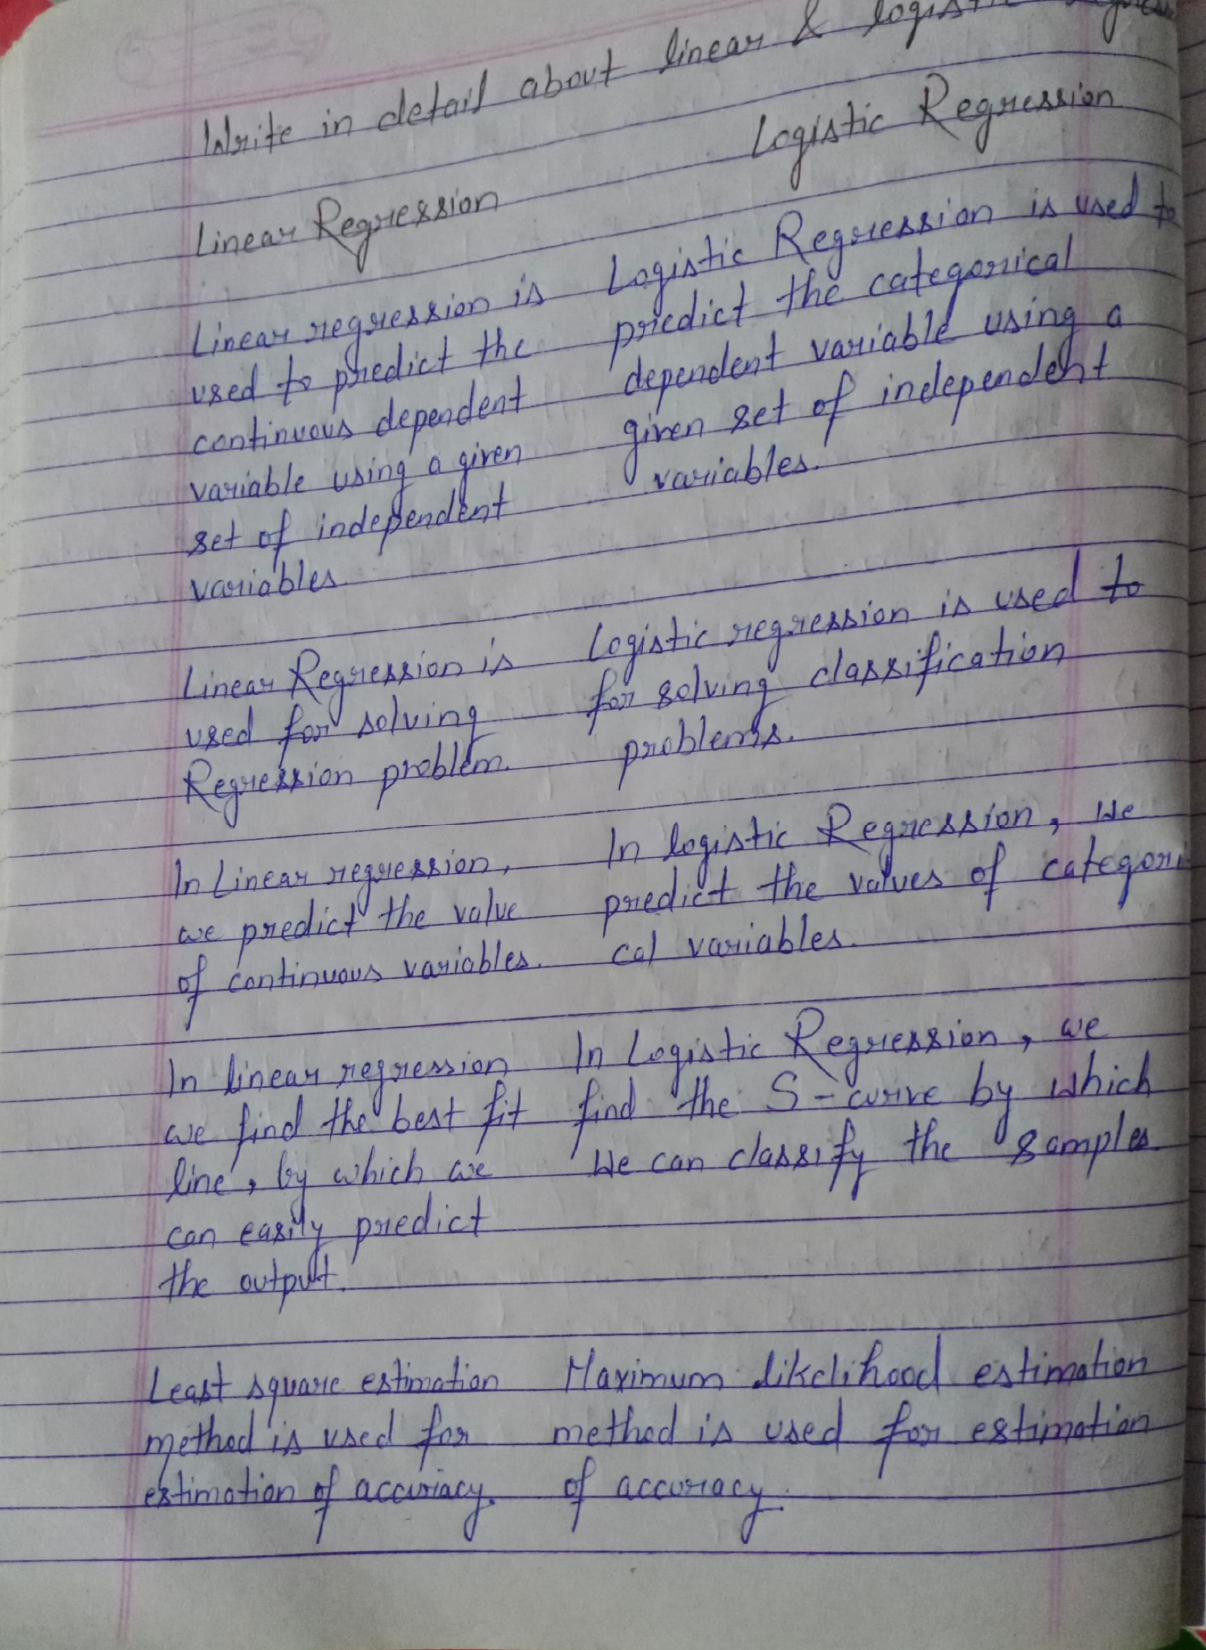 Write in detail about linear & logistic
Logistic Regression
Linear Regression
Linear regression is
used to predict the
continuous dependent
variable using a given
set of independent
variables.
Logistic Regression is used to
predict the categorical
dependent variable using a
given set of independent
variables.
Linear Regression is
used for solving
Regression problem.
Logistic regression is used to
for solving classification
problems.
In Linear regression,
we predict the value
of continuous variables.
In logistic Regression, we
predict the values of categori
cal variables.
In linear regression
we find the best fit
line, by which we
can easily predict
the output.
In Logistic Regression, we
find the S-curve by which
we can classify the samples.
Least square estimation
method is used for
estimation of accuracy.
Maximum likelihood estimation
method is used for estimation
of accuracy.